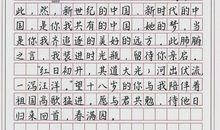 此，然，新世纪的中国，新时代的中
国，是你我共有的中国，她的梦，当
是你我齐追逐的美好的远方，此肺腑
之言，我装进时光瓶，留待你亲启。
“红日初升，其道大光；河出伏流，
一泻汪洋。”望十八岁的你与我陪伴着
祖国高歌猛进，愿与君共勉，待他日
归来回首，春满园。